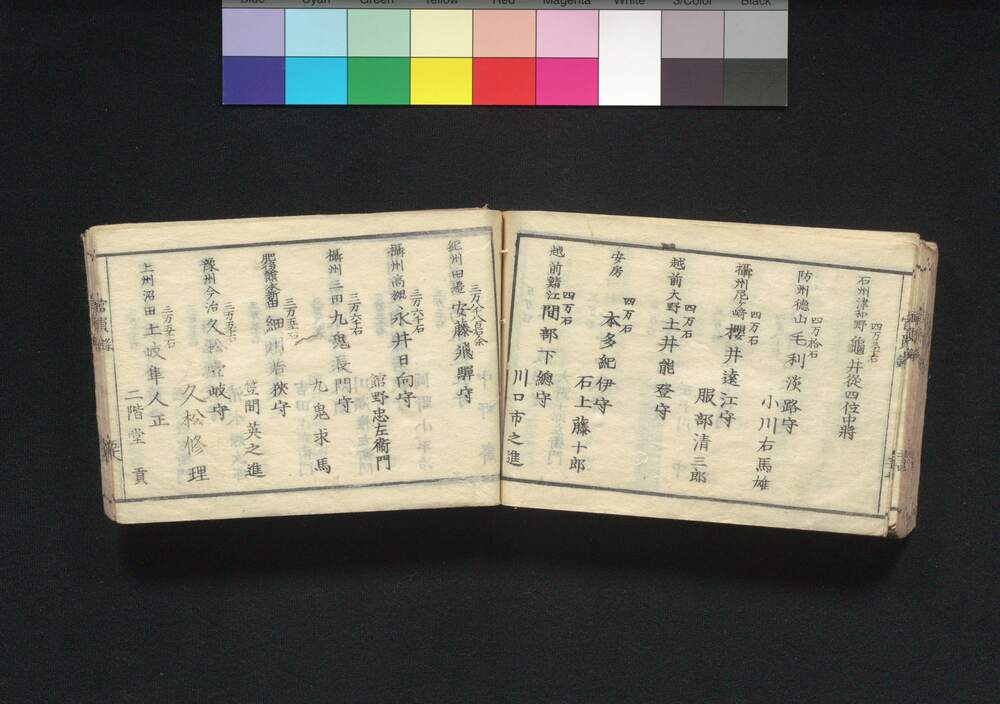 Blue Cyan Green Yellow Red Magenta White 3/Color Black
四万三千石
石州津和野 龜井從四位中將
四万拾石
防州徳山 毛利淡路守
小川右馬雄
四万石
攝州尼ヶ崎 櫻井遠江守
服部清三郎
四万石
越前大野 土井能登守
四万石
安房 本多紀伊守
石上藤十郎
四万石
越前鯖江 間部下總守
川口市之進
三万八千八百石余
紀州田邊 安藤飛騨守
三万六千石
攝州高槻 永井日向守
館野忠左衞門
三万六千石
攝州三田 九鬼長門守
九鬼求馬
三万五千石
肥後熊本新田 細川若狹守
笠間英之進
三万五千石
豫州今治 久松壹岐守
久松修理
三万五千石
上州沼田 土岐隼人正
二階堂貢